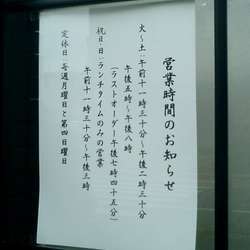 営業時間のお知らせ
火～土:午前十一時三十分～午後二時三十分
午後五時～午後八時
(ラストオーダー午後七時四十五分)
祝日・日:ランチタイムのみの営業
午前十一時三十分～午後三時
定休日:毎週月曜日と第四日曜日